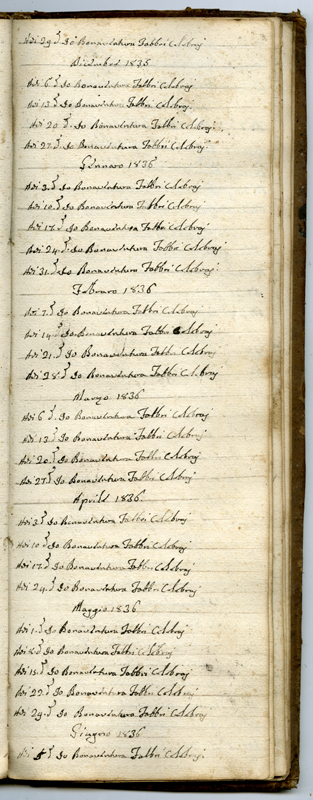 Adi 29 d.º Io Bonaventura Fabbri Celebraj
Dicembre 1835
Adi 6 d.º Io Bonaventura Fabbri Celebraj
Adi 13 d.º Io Bonaventura Fabbri Celebraj
Adi 20 d.º Io Bonaventura Fabbri Celebraj
Adi 27 d.º Io Bonaventura Fabbri Celebraj
Gennaro 1836
Adi 3 d.º Io Bonaventura Fabbri Celebraj
Adi 10 d.º Io Bonaventura Fabbri Celebraj
Adi 17 d.º Io Bonaventura Fabbri Celebraj
Adi 24 d.º Io Bonaventura Fabbri Celebraj
Adi 31 d.º Io Bonaventura Fabbri Celebraj
Febraro 1836
Adi 7 d.º Io Bonaventura Fabbri Celebraj
Adi 14 d.º Io Bonaventura Fabbri Celebraj
Adi 21 d.º Io Bonaventura Fabbri Celebraj
Adi 28 d.º Io Bonaventura Fabbri Celebraj
Marzo 1836
Adi 6 d.º Io Bonaventura Fabbri Celebraj
Adi 13 d.º Io Bonaventura Fabbri Celebraj
Adi 20 d.º Io Bonaventura Fabbri Celebraj
Adi 27 d.º Io Bonaventura Fabbri Celebraj
Aprile 1836
Adi 3 d.º Io Bonaventura Fabbri Celebraj
Adi 10 d.º Io Bonaventura Fabbri Celebraj
Adi 17 d.º Io Bonaventura Fabbri Celebraj
Adi 24 d.º Io Bonaventura Fabbri Celebraj
Maggio 1836
Adi 1 d.º Io Bonaventura Fabbri Celebraj
Adi 8 d.º Io Bonaventura Fabbri Celebraj
Adi 15 d.º Io Bonaventura Fabbri Celebraj
Adi 22 d.º Io Bonaventura Fabbri Celebraj
Adi 29 d.º Io Bonaventura Fabbri Celebraj
Giugno 1836
Adi d.º Io Bonaventura Fabbri Celebraj